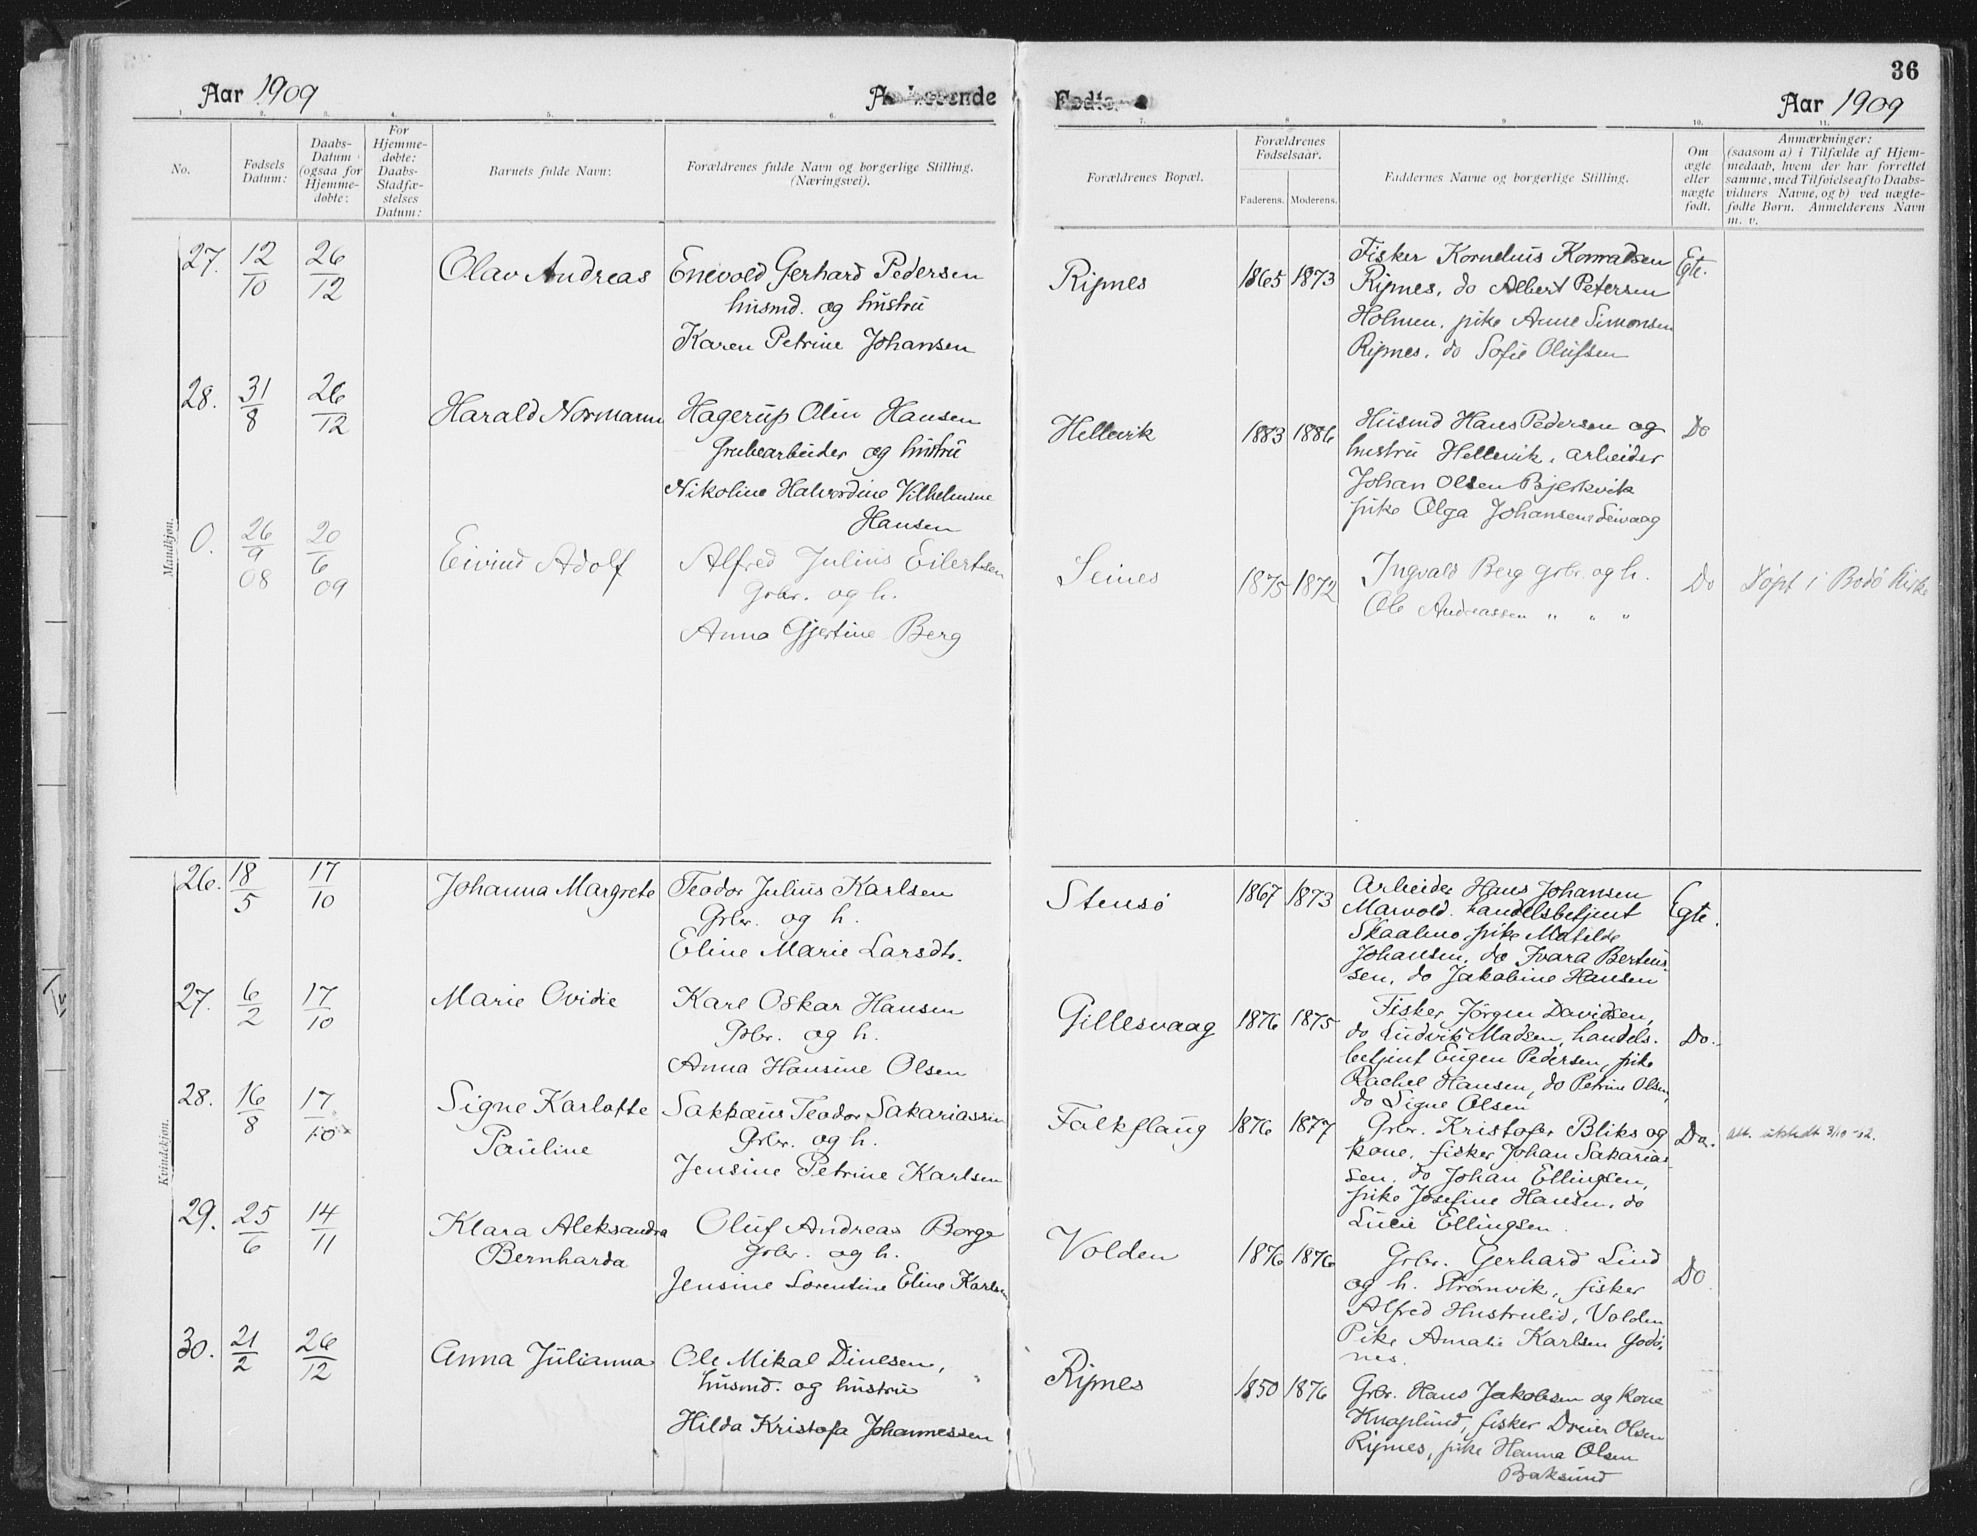 36
Aar 1909
Fødte
Aar 1909
1. 2. 3. 4. 5. 6. 7. 8 9 10. 11.
No.
Fødsels Datum:
Daabs-Datum (ogsaa for Hjemme-døbte:
For Hjemme-døbte: Daabs-Stadfæ-stelses Datum:
Barnets fulde Navn:
Forældrenes fulde Navn og borgerlige Stilling. (Næringsvei).
Forældrenes Bopæl.
Forældrenes Fødselsaar.
Faderens. Moderens.
Faddernes Navne og borgerlige Stilling.
Om ægte eller uægte født.
Anmærkninger:
(saasom a) i Tilfælde af Hjem-
medaab, hvem der har forrettet
samme, med Tilføielse af to Daabs-
vidners Navne, og b) ved uægte-
fødte Børn. Anmelderens Navn
m. v.
Mandkjøn.
27. 12/10 26/12 Olav Andreas
Enevold Gerhard Pedersen
husmd. og hustru
Karen Petrine Johansen
Ripnes 1865 1873
Fisker Kornelius Konradsen
Ripnes, do Albert Petersen
Holmen, pike Anne Simonsen
Ripnes, do Sofie Olufsen
Egte.
28. 31/8 26/12 Harald Normann
Hagerup Olin Hansen
Grubearbeider og hustru
Nikoline Halvordine Vilhelmine
Hansen
Hellevik 1883 1886
Husmd Hans Pedersen og
hustru Hellevik, arbeider
Johan Olsen Bjerkvik
pike Olga Johansen Leivaag
Do
0. 26/9 08 20/6 09 Eivind Adolf
Alfred Julius Eilertsen
Grbr. og h.
Anna Gjertine Berg
Seines 1875 1872
Ingvald Berg grbr. og h.
Ole Andreassen " " "
Do
Døpt i Bodø kirke
Kvindekjøn.
26. 18/5 17/10 Johanna Margrete
Teodor Julius Karlsen
Grbr. og h.
Eline Marie Larsdtr.
Stensø 1867 1873
Arbeider Hans Johansen
Marvold. handelsbetjent
Skaalmo, pike Matilde
Johansen, do Ivara Bertius-
sen, do Jakobine Hansen
Egte.
27. 6/2 17/10 Marie Ovidie
Karl Oskar Hansen
Grbr. og h.
Anna Hansine Olsen
Gillesvaag 1876 1875
Fisker Jørgen Davidsen,
do Ludvik Madsen, handels-
betjent Eugen Pedersen, pike
Rachel Hansen, do Petrine Olsen,
do Signe Olsen
Do.
28. 16/8 17/10 Signe Karlotte
Pauline
Sakkæus Teodor Sakariassen
Grbr. og h.
Jensine Petrine Karlsen
Falkflaug 1876 1877
Grbr. Kristofer Bliks og
kone, fisker Johan Sakarias-
sen, do Johan Ellingsen,
pike Josefine Hansen, do
Lucie Ellingsen.
Do.
Att. utstedt 3/10-62.
29. 25/6 14/11 Klara Aleksandra
Bernharda
Oluf Andreas Borge
Grbr. og h.
Jensine Lorentine Eline Karlsen
Volden 1876 1876
Grbr. Gerhard Lind
og h. Strømvik, fisker
Alfred Hustrulid, Volden
Pike Amalie Karlsen Godø-
nes.
Do
30. 21/2 26/12 Anna Julianna
Ole Mikal Dinesen,
husmd. og hustru
Hilda Kristofa Johannessen
Ripnes 1850 1876
Grbr. Hans Jakobsen og kone
Knaplund, fisker Dreier Olsen
Ripnes, pike Hanna Olsen
Baksund